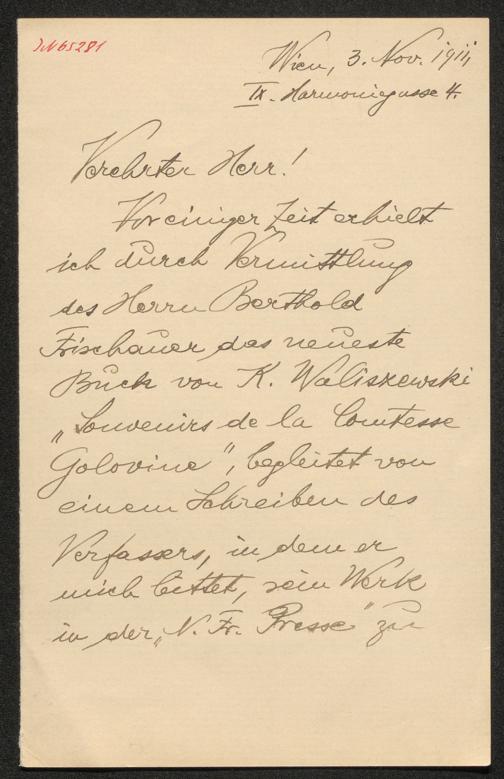 IN 65281
Wien, 3. Nov. 1911,
IX. Harmoniegasse 4.
Verehrter Herr!
Vor einiger Zeit erhielt
ich durch Vermittlung
des Herrn Berthold
Frischauer das neueste
Buch von K. Waliszewski
„Souvenirs de la Comtesse
Golovine", begleitet von
einem Schreiben des
Verfassers, in dem er
mich bittet, sein Werk
in der „N. Fr. Presse" zu